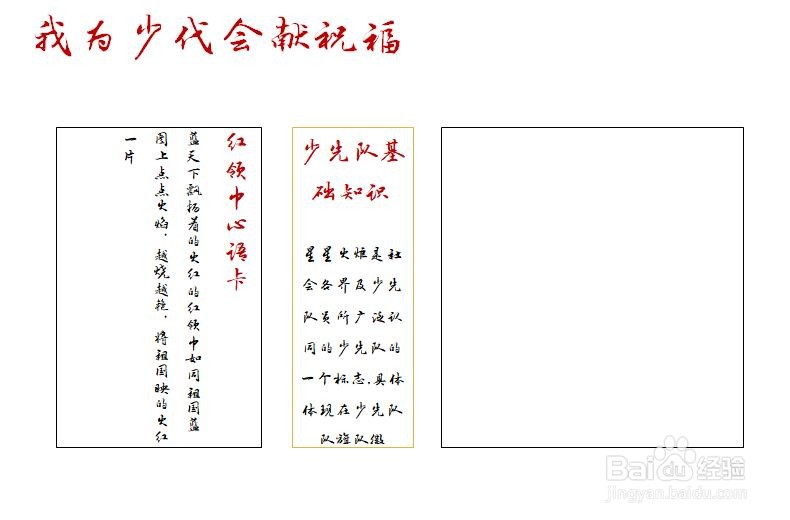 我为少代会献祝福
红领巾心语卡
蓝天下飘扬着的火红的红领巾如同祖国蓝
图上点点火焰，越烧越艳，将祖国映的火红
一片
少先队基
础知识
星星火炬是社
会各界及少先
队员所广泛认
同的少先队的
一个标志，具体
体现在少先队
队旗队徽
Baidu经验
jingyan.baidu.com